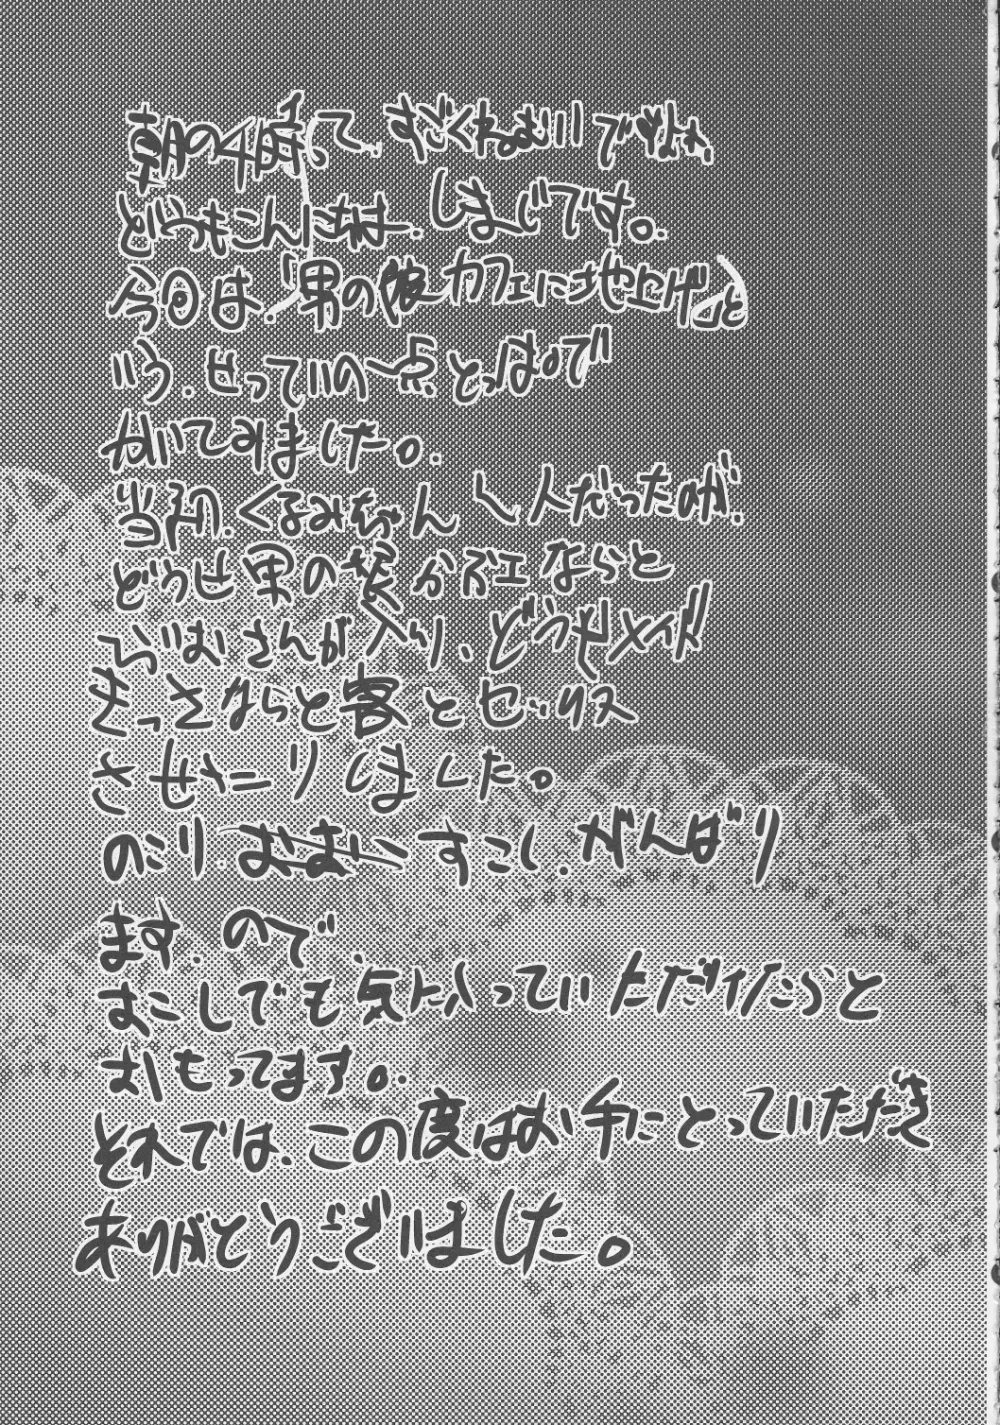 朝の4時って、すごくねむいですよね、
どうもこんにちは、しまじです。
今日は、「男の娘カフェに地上げ」と
いう、せっていの一点とっぱで
かいてみました。
当初、くるみちゃん 1人だったのが、
どうせ男の娘かふェならと
ふじおさんが入り、どうせメイド
きっさならと客とセックス
させたりしました。
のこり、すこし、がんばり
ます。ので、
すこしでも気に入っていただけたらと
おもってます。
それでは、この度はお手にとっていただき
ありがとうございました。